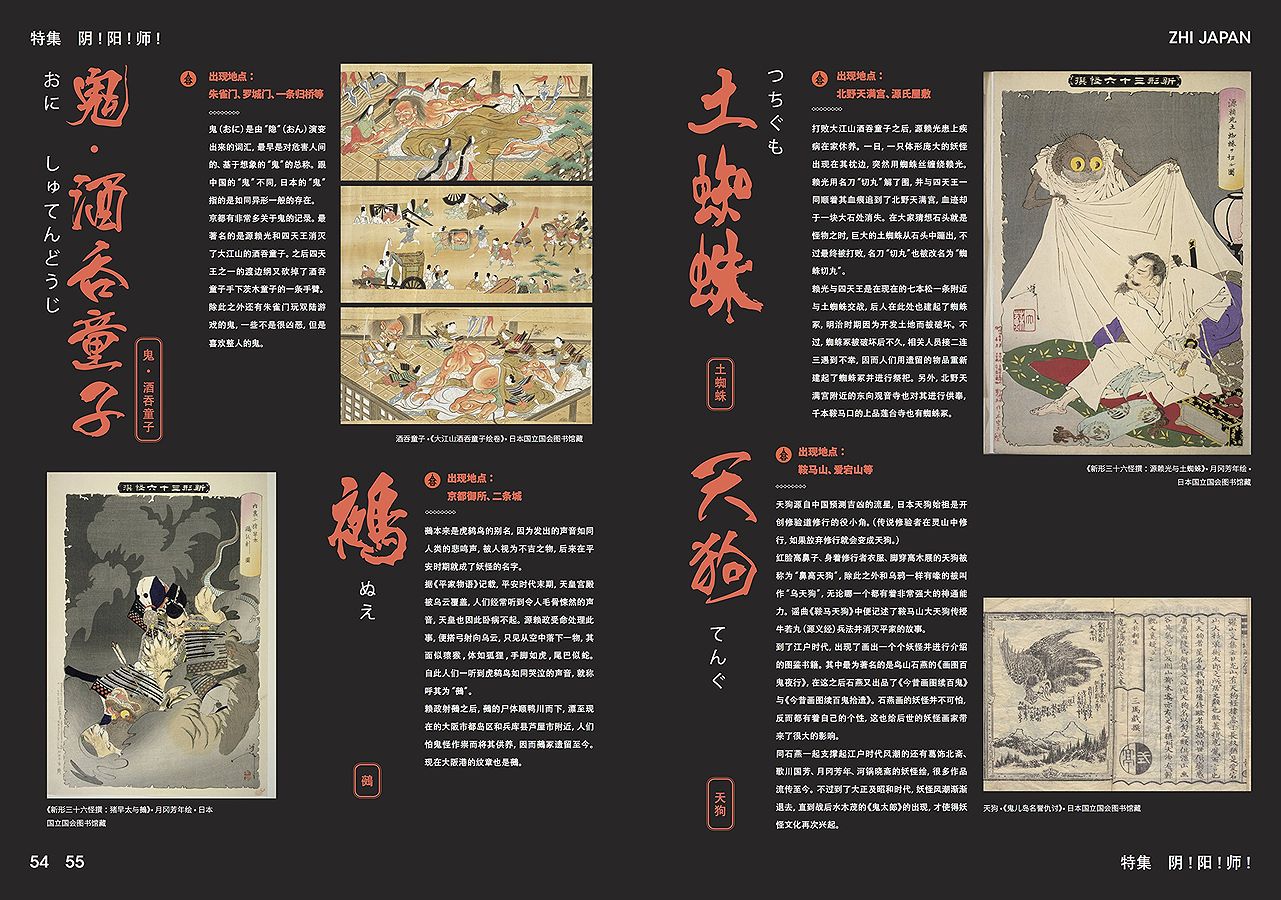 特集 阴！阳！师！
ZHI JAPAN
鬼・酒吞童子
おに しゅてんどうじ
鬼・酒吞童子
出现地点：
朱雀门、罗城门、一条归桥等
鬼（おに）是由“隐”（おん）演变
出来的词汇，最早是对危害人间
的、基于想象的“鬼”的总称。跟
中国的“鬼”不同，日本的“鬼”
指的是如同异形一般的存在。
京都有非常多关于鬼的记录。最
著名的是源赖光和四天王消灭
了大江山的酒吞童子。之后四天
王之一的渡边纲又砍掉了酒吞
童子手下茨木童子的一条手臂。
除此之外还有朱雀门玩双陆游
戏的鬼，一些不是很凶恶，但是
喜欢整人的鬼。
酒吞童子・《大江山酒吞童子绘卷》・日本国立国会图书馆藏
新形三十六怪撰
《新形三十六怪撰：猪早太与鵺》・月冈芳年绘・日本
国立国会图书馆藏
鵺
ぬえ
鵺
出现地点：
京都御所、二条城
鵺本来是虎鸫鸟的别名，因为发出的声音如同
人类的悲鸣声，被人视为不吉之物，后来在平
安时期就成了妖怪的名字。
据《平家物语》记载，平安时代末期，天皇宫殿
被乌云覆盖，人们经常听到令人毛骨悚然的声
音，天皇也因此卧病不起。源赖政受命处理此
事，便搭弓射向乌云，只见从空中落下一物，其
面似猿猴，体如狐狸，手脚如虎，尾巴似蛇。
自此人们一听到虎鸫鸟如同哭泣的声音，就称
呼其为“鵺”。
赖政射鵺之后，鵺的尸体顺鸭川而下，漂至现
在的大阪市都岛区和兵库县芦屋市附近，人们
怕鬼怪作祟而将其供养，因而鵺冢遗留至今。
现在大阪港的纹章也是鵺。
土蜘蛛
つちぐも
土蜘蛛
出现地点：
北野天满宫、源氏屋敷
打败大江山酒吞童子之后，源赖光患上疾
病在家休养。一日，一只体形庞大的妖怪
出现在其枕边，突然用蜘蛛丝缠绕赖光。
赖光用名刀“切丸”解了围，并与四天王一
同顺着其血痕追到了北野天满宫，血迹却
于一块大石处消失。在大家猜想石头就是
怪物之时，巨大的土蜘蛛从石头中蹦出，不
过最终被打败，名刀“切丸”也被改名为“蜘
蛛切丸”。
赖光与四天王是在现在的七本松一条附近
与土蜘蛛交战，后人在此处也建起了蜘蛛
冢，明治时期因为开发土地而被破坏。不
过，蜘蛛冢被破坏后不久，相关人员接二连
三遇到不幸，因而人们用遗留的物品重新
建起了蜘蛛冢并进行祭祀。另外，北野天
满宫附近的东向观音寺也对其进行供奉，
千本鞍马口的上品莲台寺也有蜘蛛冢。
新形三十六怪撰
源頼光土蜘蛛ヲ切ル圖
《新形三十六怪撰：源赖光与土蜘蛛》・月冈芳年绘・
日本国立国会图书馆藏
天狗
てんぐ
天狗
出现地点：
鞍马山、爱宕山等
天狗源自中国预测吉凶的流星，日本天狗始祖是开
创修验道修行的役小角。（传说修验者在灵山中修
行，如果放弃修行就会变成天狗。）
红脸高鼻子、身着修行者衣服、脚穿高木屐的天狗被
称为“鼻高天狗”，除此之外和乌鸦一样有喙的被叫
作“乌天狗”，无论哪一个都有着非常强大的神通能
力。谣曲《鞍马天狗》中便记述了鞍马山大天狗传授
牛若丸（源义经）兵法并消灭平家的故事。
到了江户时代，出现了画出一个个妖怪并进行介绍
的图鉴书籍。其中最为著名的是鸟山石燕的《画图百
鬼夜行》，在这之后石燕又出品了《今昔画图续百鬼》
与《今昔百鬼拾遗》。石燕画的妖怪并不可怕，
反而都有着自己的个性，这也给后世的妖怪画家带
来了很大的影响。
同石燕一起支撑起江户时代风潮的还有葛饰北斋、
歌川国芳、月冈芳年、河锅晓斋的妖怪绘，很多作品
流传至今。不过到了大正及昭和时代，妖怪风潮渐渐
退去，直到战后水木茂的《鬼太郎》的出现，才使得妖
怪文化再次兴起。
天狗・《鬼儿岛名誉仇讨》・日本国立国会图书馆藏
54 55
特集 阴！阳！师！